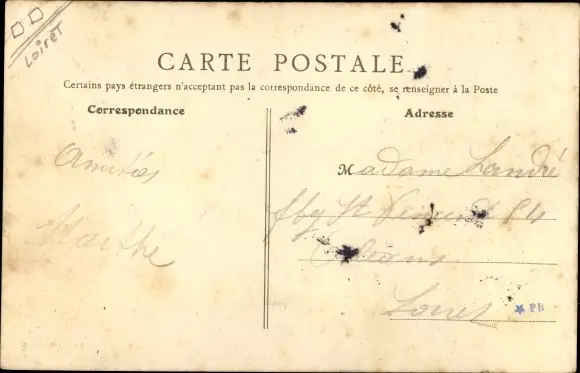 Loiret
CARTE POSTALE
Certains pays étrangers n'acceptant pas la correspondance de ce côté, se renseigner à la Poste
Correspondance
Adresse
Amitiés
Marthe
Madame Landré
fbg St Vincent 54
Orléans
Loiret
PB